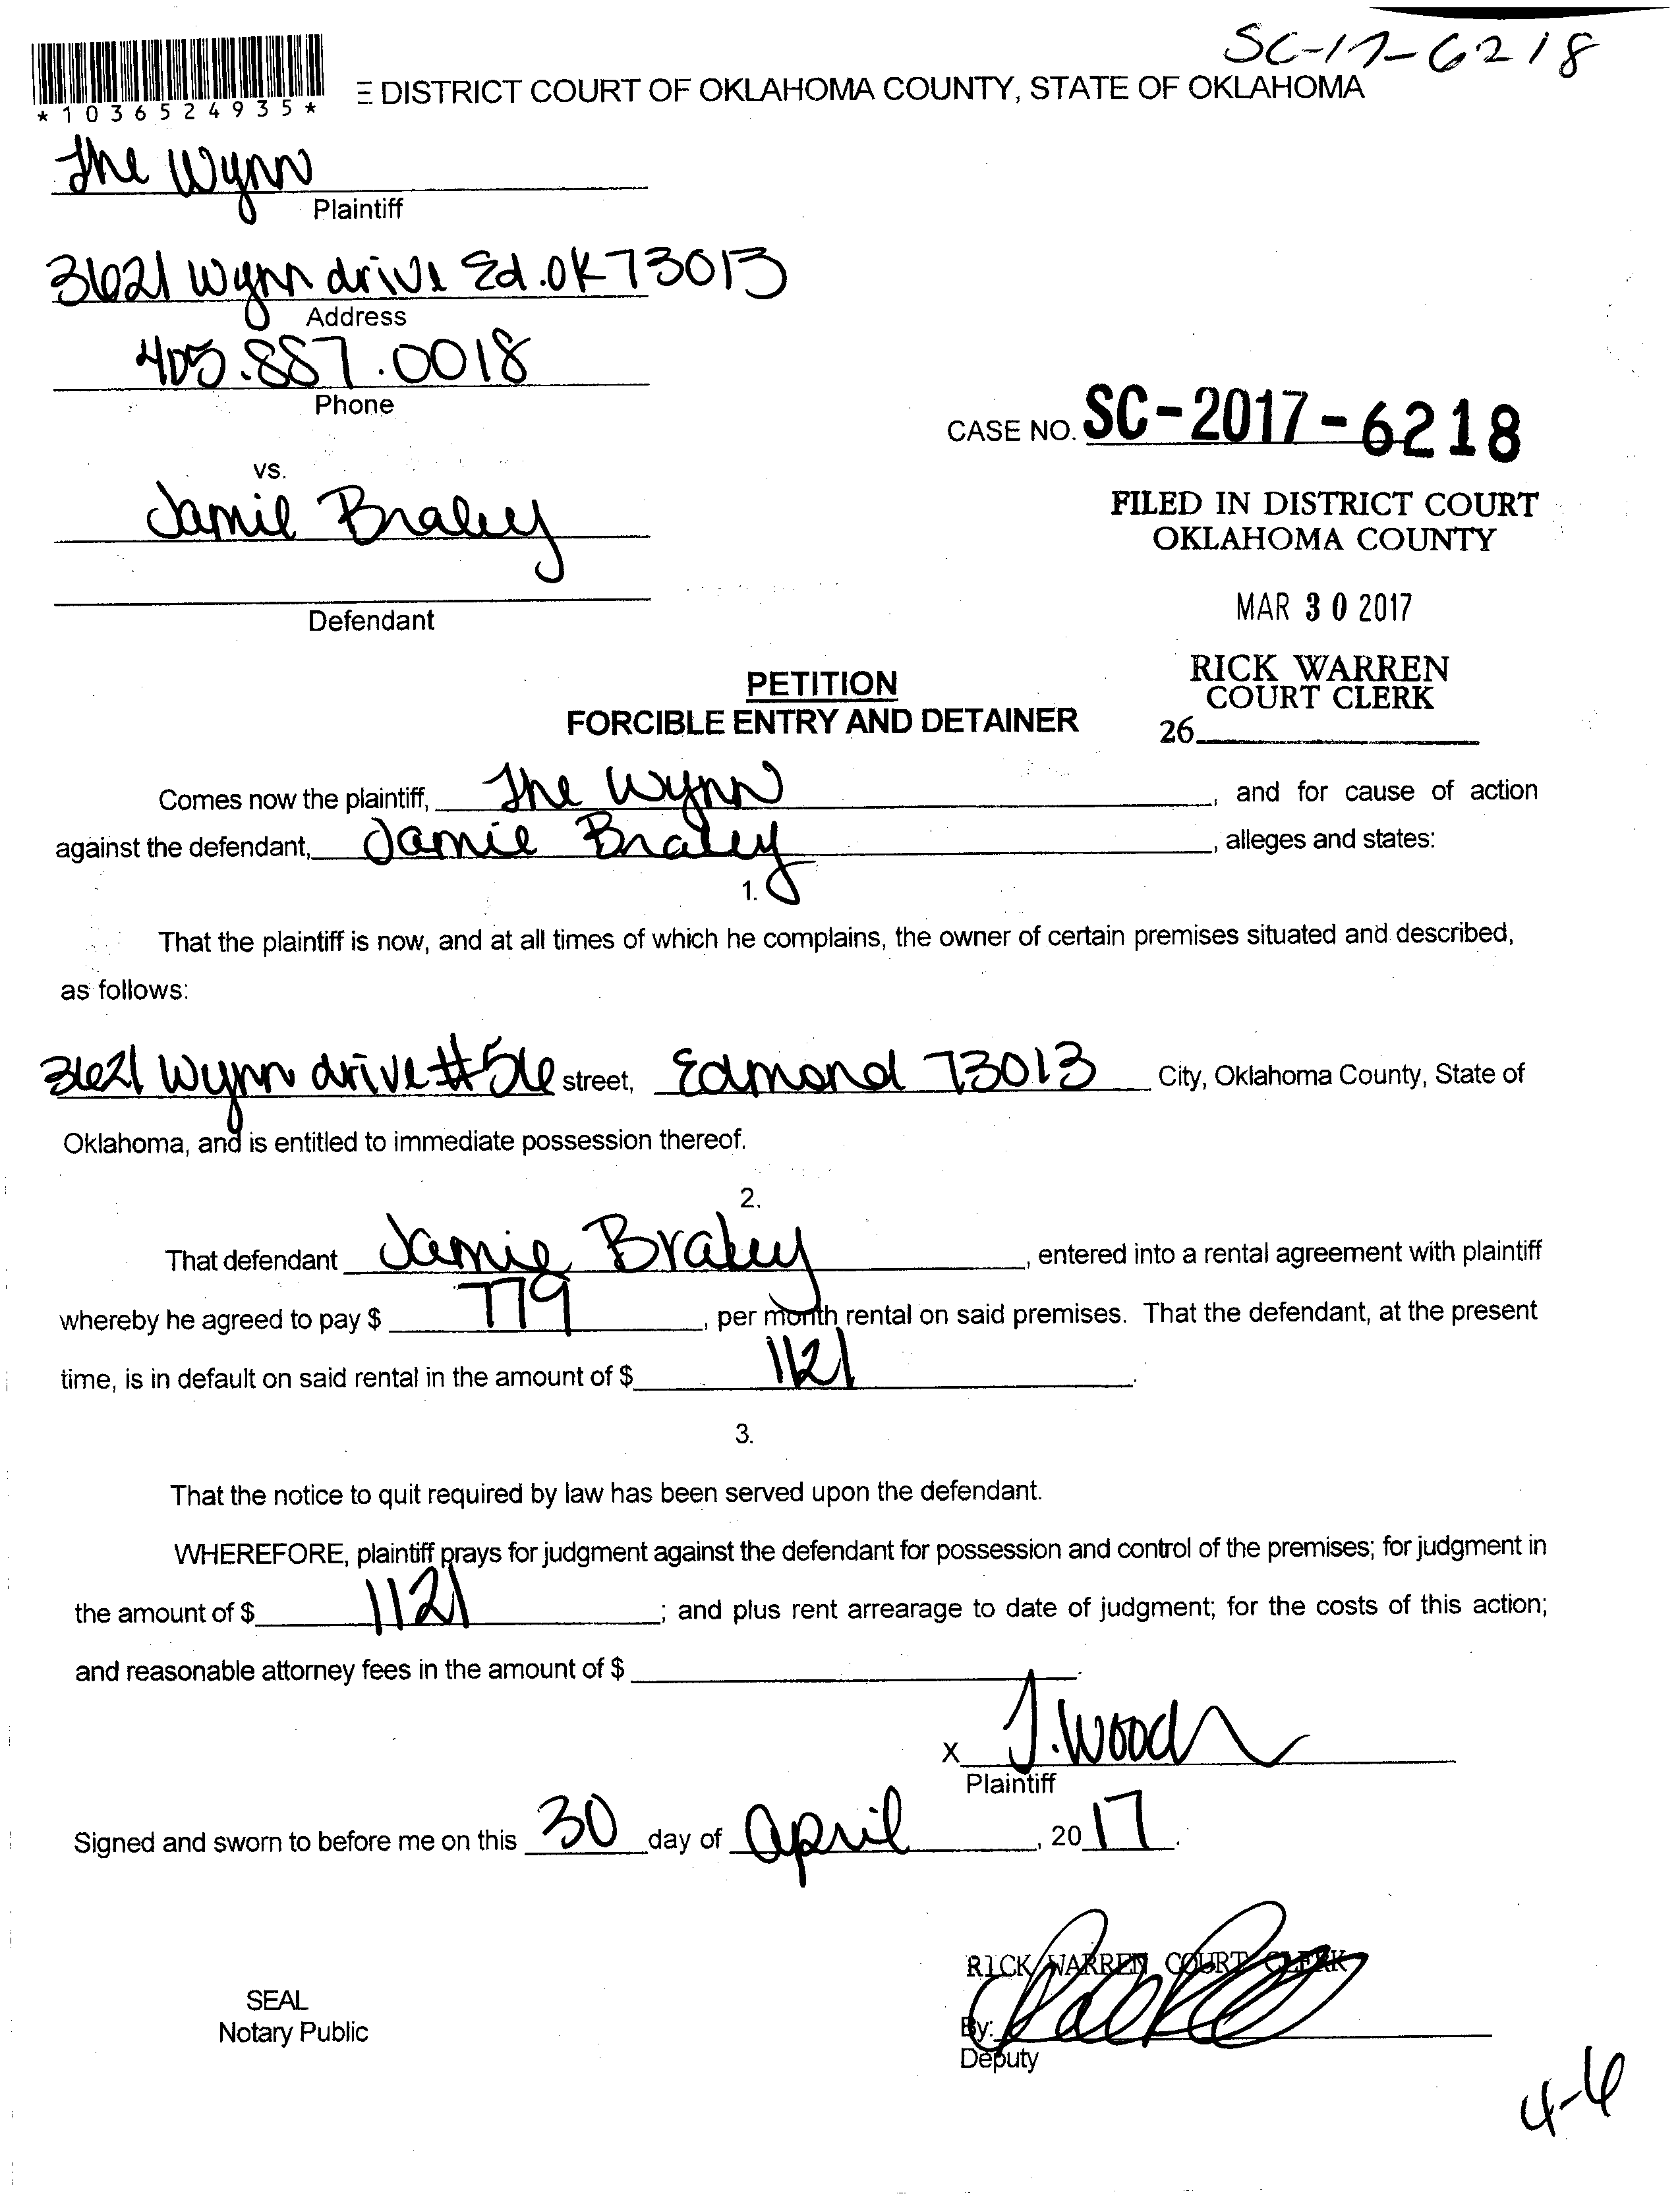 SC-17-6218
*1036524935*
E DISTRICT COURT OF OKLAHOMA COUNTY, STATE OF OKLAHOMA
The Wynn
Plaintiff
3621 Wynn drive Ed. OK 73013
Address
405.887.0018
Phone
CASE NO. SC-2017-6218
vs.
Jamie Braley
FILED IN DISTRICT COURT
OKLAHOMA COUNTY
Defendant
MAR 30 2017
RICK WARREN
COURT CLERK
26
PETITION
FORCIBLE ENTRY AND DETAINER
Comes now the plaintiff, The Wynn, and for cause of action
against the defendant, Jamie Braley, alleges and states:
1.
That the plaintiff is now, and at all times of which he complains, the owner of certain premises situated and described,
as follows:
3621 Wynn drive #56 street, Edmond 73013 City, Oklahoma County, State of
Oklahoma, and is entitled to immediate possession thereof.
2.
That defendant Jamie Braley, entered into a rental agreement with plaintiff
whereby he agreed to pay $ 779, per month rental on said premises. That the defendant, at the present
time, is in default on said rental in the amount of $ 1121.
3.
That the notice to quit required by law has been served upon the defendant.
WHEREFORE, plaintiff prays for judgment against the defendant for possession and control of the premises; for judgment in
the amount of $ 1121; and plus rent arrearage to date of judgment; for the costs of this action;
and reasonable attorney fees in the amount of $.
X J. Wood
Plaintiff
Signed and sworn to before me on this 30 day of April, 2017.
RICK WARREN COURT CLERK
SEAL
Notary Public
By:
Deputy
4-6